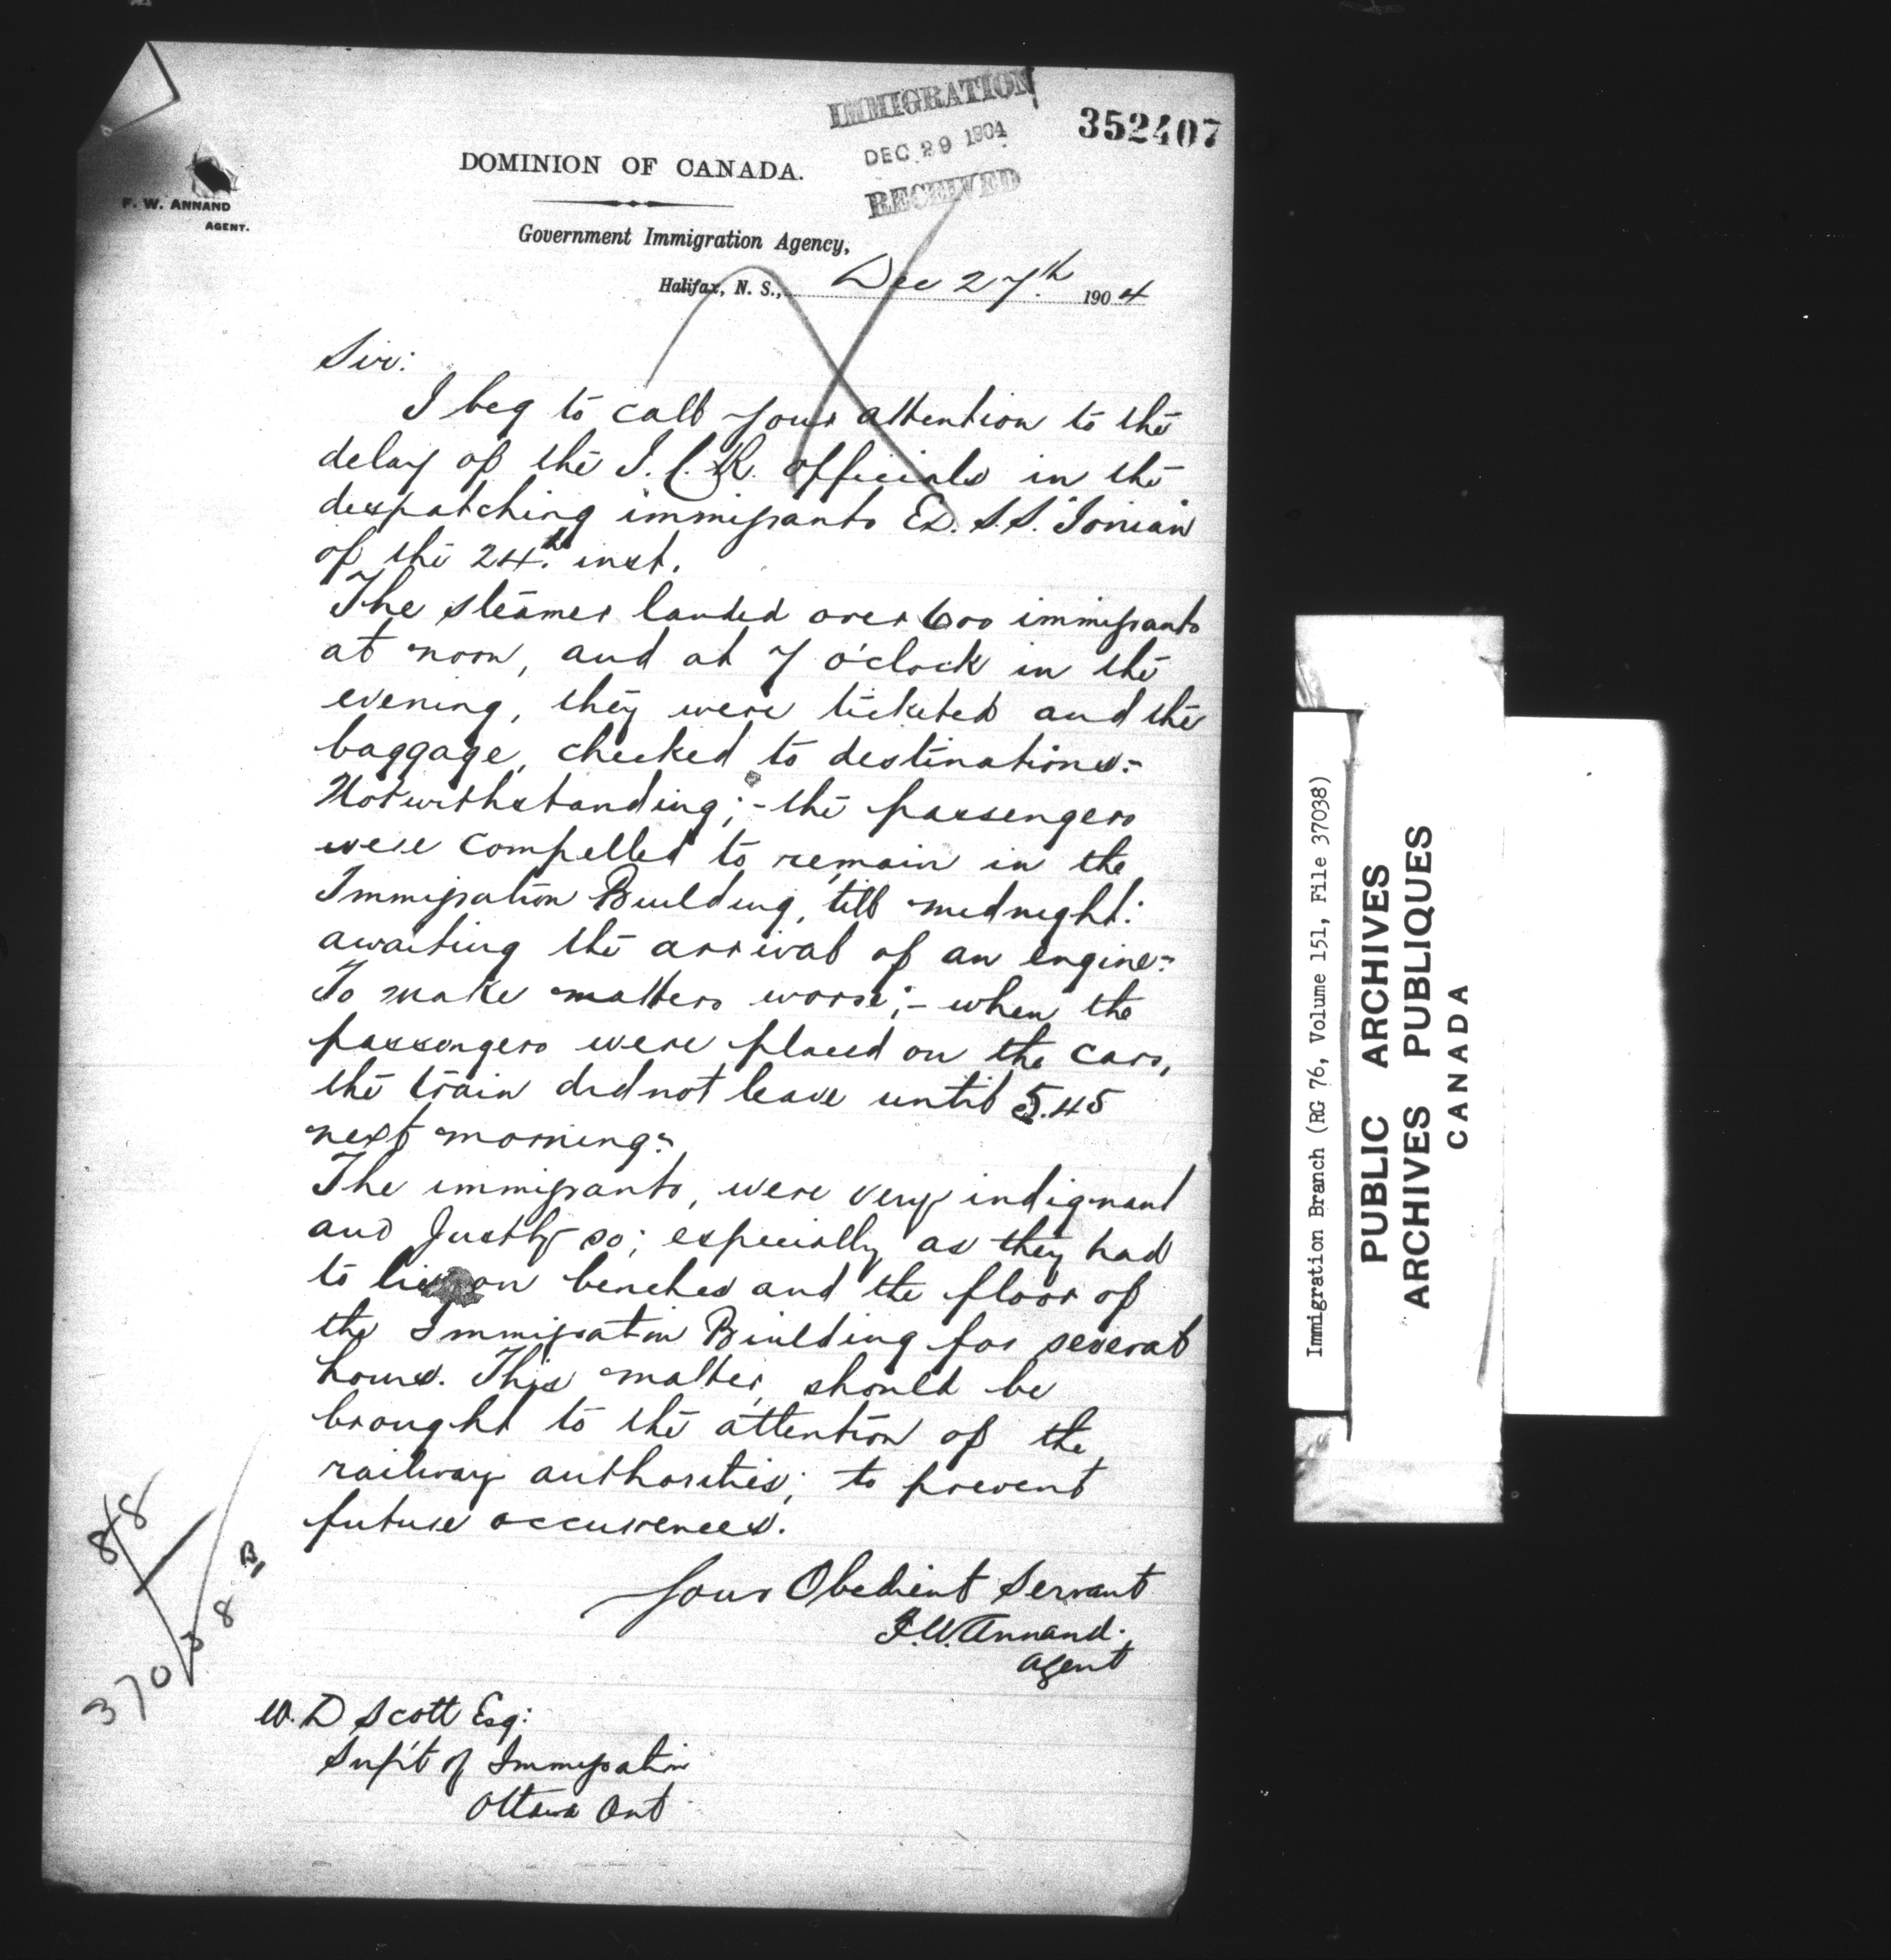 IMMIGRATION
DEC 29 1904
RECEIVED
352407
F. W. ANNAND
AGENT.
DOMINION OF CANADA.
Government Immigration Agency,
Halifax, N. S., Dec 27th 1904
Sir:
I beg to call your attention to the
delay of the I.C.R. officials in the
despatching immigrants Ex. S.S. "Ionian"
of the 24th inst.
The steamer landed over 600 immigrants
at noon, and at 7 o'clock in the
evening, they were ticketed and the
baggage, checked to destinations:-
Notwithstanding;- the passengers
were compelled to remain in the
Immigration Building, till midnight:
awaiting the arrival of an engine:-
To make matters worse;- when the
passengers were placed on the cars,
the train did not leave until 5.45
next morning:-
The immigrants, were very indignant
and Justly so; especially as they had
to lie on benches and the floor of
the Immigration Building for several
hours. This matter, should be
brought to the attention of the
railway authorities; to prevent
future occurences.
Your Obedient Servant
F.W. Annand.
Agent
W. D Scott Esq:
Sup't of Immigration
Ottawa Ont
88
B,
37038
Immigration Branch (RG 76, Volume 151, File 37038)
PUBLIC ARCHIVES
ARCHIVES PUBLIQUES
CANADA